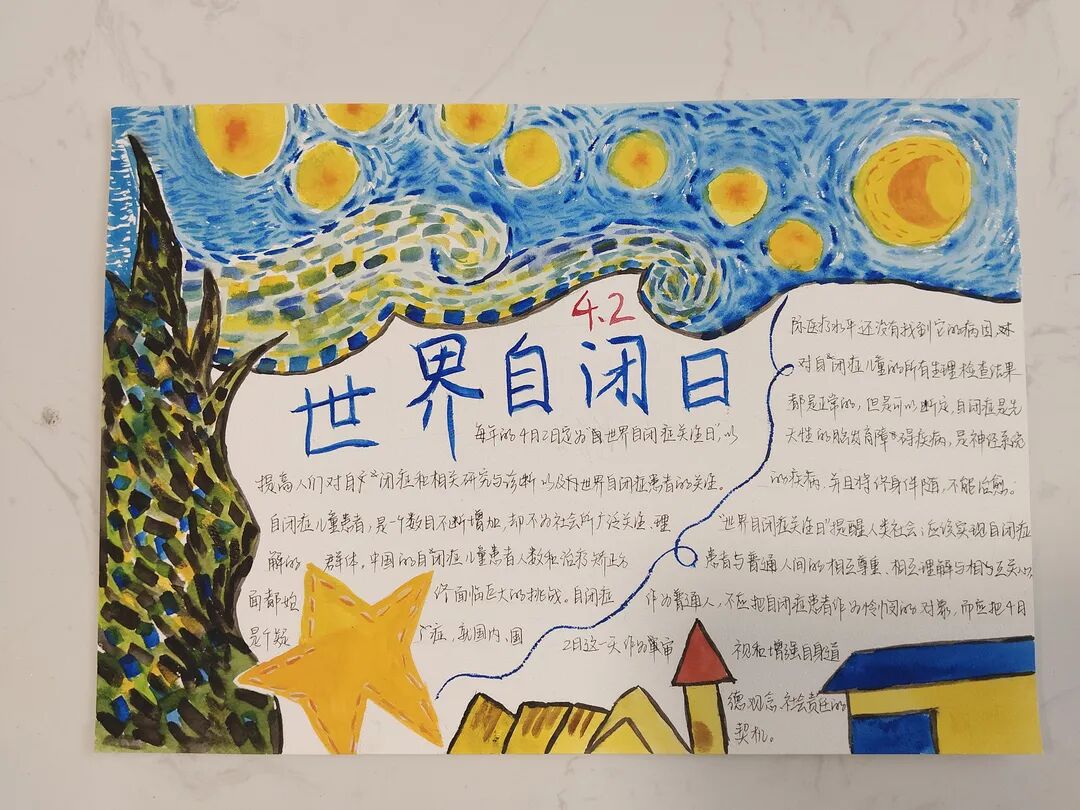 4.2
世界自闭日
每年的4月2日定为"世界自闭症关注日",以
提高人们对自闭症和相关研究与诊断以及对世界自闭症患者的关注。
自闭症儿童患者,是一个数目不断增加,却不为社会所广泛关注、理
解的 群体,中国的自闭症儿童患者人数和治疗矫正方
面都始 终面临巨大的挑战。自闭症
是个疑 症,就国内、国
际医疗水平还没有找到它的病因,对
对自闭症儿童的所有生理检查结果
都是正常的,但是可以断定,自闭症是先
天性的脑发育障碍疾病,是神经系统
的疾病,并且将伴身伴随,不能治愈。
"世界自闭症关注日"提醒人类社会,应该实现自闭症
患者与普通人间的相互尊重、相互理解与相互关心,
作为普通人,不应把自闭症患者作为怜悯的对象,而应把4月
2日这一天作为审视和增强自身道
德观念、社会责任的
契机。